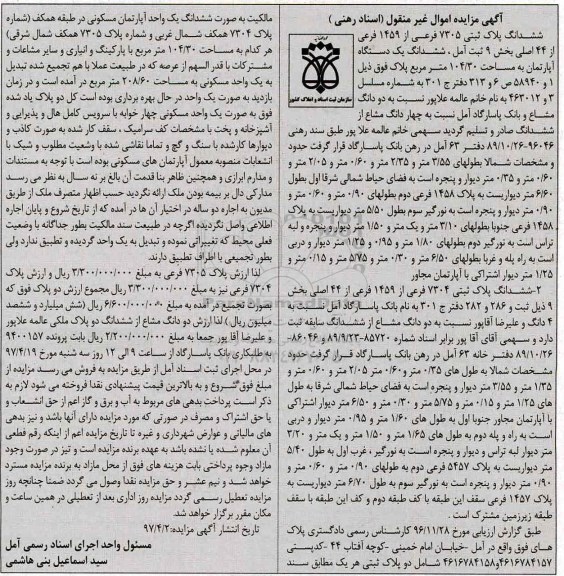 آگهی مزایده اموال غیر منقول (اسناد رهنی)
ششدانگ پلاک ثبتی ۷۳۰۵ فرعی از ۱۴۵۹ فرعی
از ۴۴ اصلی بخش ۹ ثبت آمل، ششدانگ یک دستگاه
آپارتمان به مساحت ۱۰۴/۳۰ متر مربع پلاک فوق ذیل
۱ و ۵۸۹۴۰ ص ۶ و ۳۱۳ دفتر ج ۳۰۱ به شماره مسلسل
۳ و ۴۶۳۰۱۲ به نام خانم عالمه علاپور نسبت به دو دانگ
مشاع و بانک پاسارگاد آمل نسبت به چهار دانگ مشاع از
ششدانگ صادر و تسلیم گردید سهمی خانم عالمه علا پور طبق سند رهنی
۸۹/۱۰/۲۶-۹۶۰۴۶ دفتر ۶۳ آمل در رهن بانک پاسارگاد قرار گرفت حدود
و مشخصات شمالا بطولهای ۳/۵۵ متر و ۲/۳۵ متر و ۰/۶۰ متر و ۲/۰۵ متر و
۰/۶۰ متر و ۰/۳۵ متر دیوار و پنجره است به فضای حیاط شمالی شرقا اول بطول
۶/۶۰ متر دیواریست به پلاک ۱۴۵۸ فرعی دوم بطولهای ۰/۹۰ متر و ۰/۶۰ متر و
۰/۹۰ متر دیوار و پنجره است به نورگیر سوم بطول ۵/۵۰ متر دیواریست به پلاک
۱۴۵۸ فرعی جنوبا بطولهای ۳/۱۰ متر و یک متر و ۱/۵۰ متر دیوار و پنجره و لبه
تراس است به نورگیر دوم بطولهای ۱/۸۰ متر و ۰/۹۵ و ۱/۲۵ متر دیوار و دربی
است به راه پله و غربا بطولهای ۶/۵۰ متر و ۰/۳۰ متر و ۵/۷۵ متر و ۰/۱۵ متر و
۱/۲۵ متر دیوار اشتراکی با آپارتمان مجاور
۲-ششدانگ پلاک ثبتی ۷۳۰۴ فرعی از ۱۴۵۹ فرعی از ۴۴ اصلی بخش
۹ ذیل ثبت و ۲۸۶ و ۲۸۲ دفتر ج ۳۰۱ به نام بانک پاسارگاد آمل نسبت به
۴ دانگ و علیرضا آقاپور نسبت به دو دانگ مشاع از ششدانگ سابقه ثبت
دارد و سهمی آقای آقا پور برابر اسناد شماره ۸۵۷۲۰-۸۹/۹/۲۳ و ۸۶۰۴۶-
۸۹/۱۰/۲۶ دفتر خانه ۶۳ آمل در رهن بانک پاسارگاد قرار گرفت حدود
مشخصات شمالا به طول های ۰/۳۵ متر و ۰/۶۰ متر ۲/۰۵ متر و ۰/۶۰ متر و
۱/۳۵ متر و ۳/۵۵ متر دیوار و پنجره است به فضای حیاط شمالی شرقا به طول
های ۱/۲۵ متر و ۰/۱۵ متر و ۵/۷۵ متر و ۰/۳۰ متر و ۶/۵۰ متر دیوار اشتراکی
با آپارتمان مجاور جنوبا اول به طول های ۱/۶۰ متر و ۰/۹۵ متر دیوار و دربی
است به راه و پله دوم به طول های ۱/۶۵ متر و ۱/۵۰ متر و یک متر و ۳/۲۰
متر دیوار لبه تراس و دیوار و پنجره است به نورگیر، غرب اول به طول ۵/۴۰
متر دیوریست به پلاک ۵۴۵۷ فرعی دوم به طولهای ۰/۹۰ متر و ۰/۶۰ متر و
۰/۹۰ متر دیوار و پنجره است به نورگیر سوم به طول ۶/۷۰ متر دیواریست به
پلاک ۱۴۵۷ فرعی سقف این طبقه با کف طبقه دوم و کف این طبقه با سقف
طبقه زیرزمین مشترک است.
طبق گزارش ارزیابی مورخ ۹۶/۱۱/۲۸ کارشناس رسمی دادگستری پلاک
های فوق واقع در آمل -خیابان امام خمینی -کوچه آفتاب ۴۴ -کدپستی
۴۶۱۶۷۸۴۱۵۷و۴۶۱۶۷۸۴۱۵۸ شامل دو پلاک ثبتی هر یک مطابق سند
سازمان ثبت اسناد و املاک کشور
مالکیت به صورت ششدانگ یک واحد آپارتمان مسکونی در طبقه همکف (شماره
پلاک ۷۳۰۴ همکف شمال غربی و شماره پلاک ۷۳۰۵ همکف شمال شرقی)
هر کدام به مساحت ۱۰۴/۳۰ متر مربع با پارکینگ و انباری و سایر مشاعات و
مشترکات با قدر السهم از عرصه که در طبیعت عملا با هم تجمیع شده تبدیل
به یک واحد مسکونی به مساحت ۲۰۸/۶۰ متر مربع در آمده است و در زمان
بازدید به صورت یک واحد در حال بهره برداری بوده است کل دو پلاک یاد شده
فوق به صورت یک واحد مسکونی چهار خوابه با سرویس کامل هال و پذیرایی و
آشپزخانه و پخت با مشخصات کف سرامیک، سقف کار شده به صورت کاذب و
دیوارها کارشده با سنگ و گچ و تماما نقاشی شده با وضعیت مطلوب و شیک با
انشعابات منصوبه معمول آپارتمان های مسکونی بوده است با توجه به مستندات
و مدارم ابرازی و همچنین ظاهر بنا قدمت آن بالغ بر نه سال به نظر می رسد
مدارکی دال بر بیمه بودن ملک ارائه نگردید حسب اظهار متصرف ملک از طریق
مدیون به اجاره دو ساله در اختیار آن ها در آمده که از تاریخ شروع و پایان اجاره
اطلاعی واصل نگردیده اگرچه در طبیعت سند مالکیت بطور جداگانه با وضعیت
فعلی محیط که تغییراتی نموده و تبدیل به یک واحد گردیده و تطبیق ندارد ولی
بطور تجمیعی با اطراف تطبیق دارند.
لذا ارزش پلاک ۷۳۰۵ فرعی به مبلغ ۳/۳۰۰/۰۰۰/۰۰۰ ریال و ارزش پلاک
۷۳۰۴ فرعی نیز به مبلغ ۳/۳۰۰/۰۰۰/۰۰۰ ریال مجموع ارزش دو پلاک فوق که
بصورت تجمیع در آمده به مبلغ ۶/۶۰۰/۰۰۰/۰۰۰ ریال (شش میلیارد و ششصد
میلیون ریال) لذا ارزش دو دانگ مشاع از ششدانگ دو پلاک ملکی عالمه علاپور
و علیرضا آقا پور جمعا به مبلغ ۲/۲۰۰/۰۰۰/۰۰۰ ریال بابت پرونده ۹۴۰۰۱۵۷
به طلبکاری بانک پاسارگاد از ساعت ۹ الی ۱۲ روز سه شنبه مورخ ۹۷/۴/۱۹
در محل اجرای ثبت اسناد آمل از طریق مزایده به فروش می رسد مزایده از
مبلغ فوق شروع و به بالاترین قیمت پیشنهادی نقدا فروخته می شود لازم به
ذکر است پرداخت بدهی های مربوط به آب و برق و گاز اعم از حق انشعاب و
یا حق اشتراک و مصرف در صورتی که مورد مزایده دارای آنها باشد و نیز بدهی
های مالیاتی و عوارض شهرداری و غیره تا تاریخ مزایده اعم از اینکه رقم قطعی
آن معلوم شده یا نشده باشد به عهده برنده مزایده است و نیز در صورت وجود
مازاد وجوه پرداختی بابت هزینه های فوق از محل مازاد به برنده مزایده مسترد
خواهد شد و نیم عشر و حق مزایده نقدا وصول می گردد ضمنا چنانچه روز
مزایده تعطیل رسمی گردد مزایده روز اداری بعد از تعطیلی در همین ساعت و
مکان مقرر برگزار خواهد شد.
تاریخ انتشار آگهی مزایده: ۹۷/۴/۲
مسئول واحد اجرای اسناد رسمی آمل
سید اسماعیل بنی هاشمی